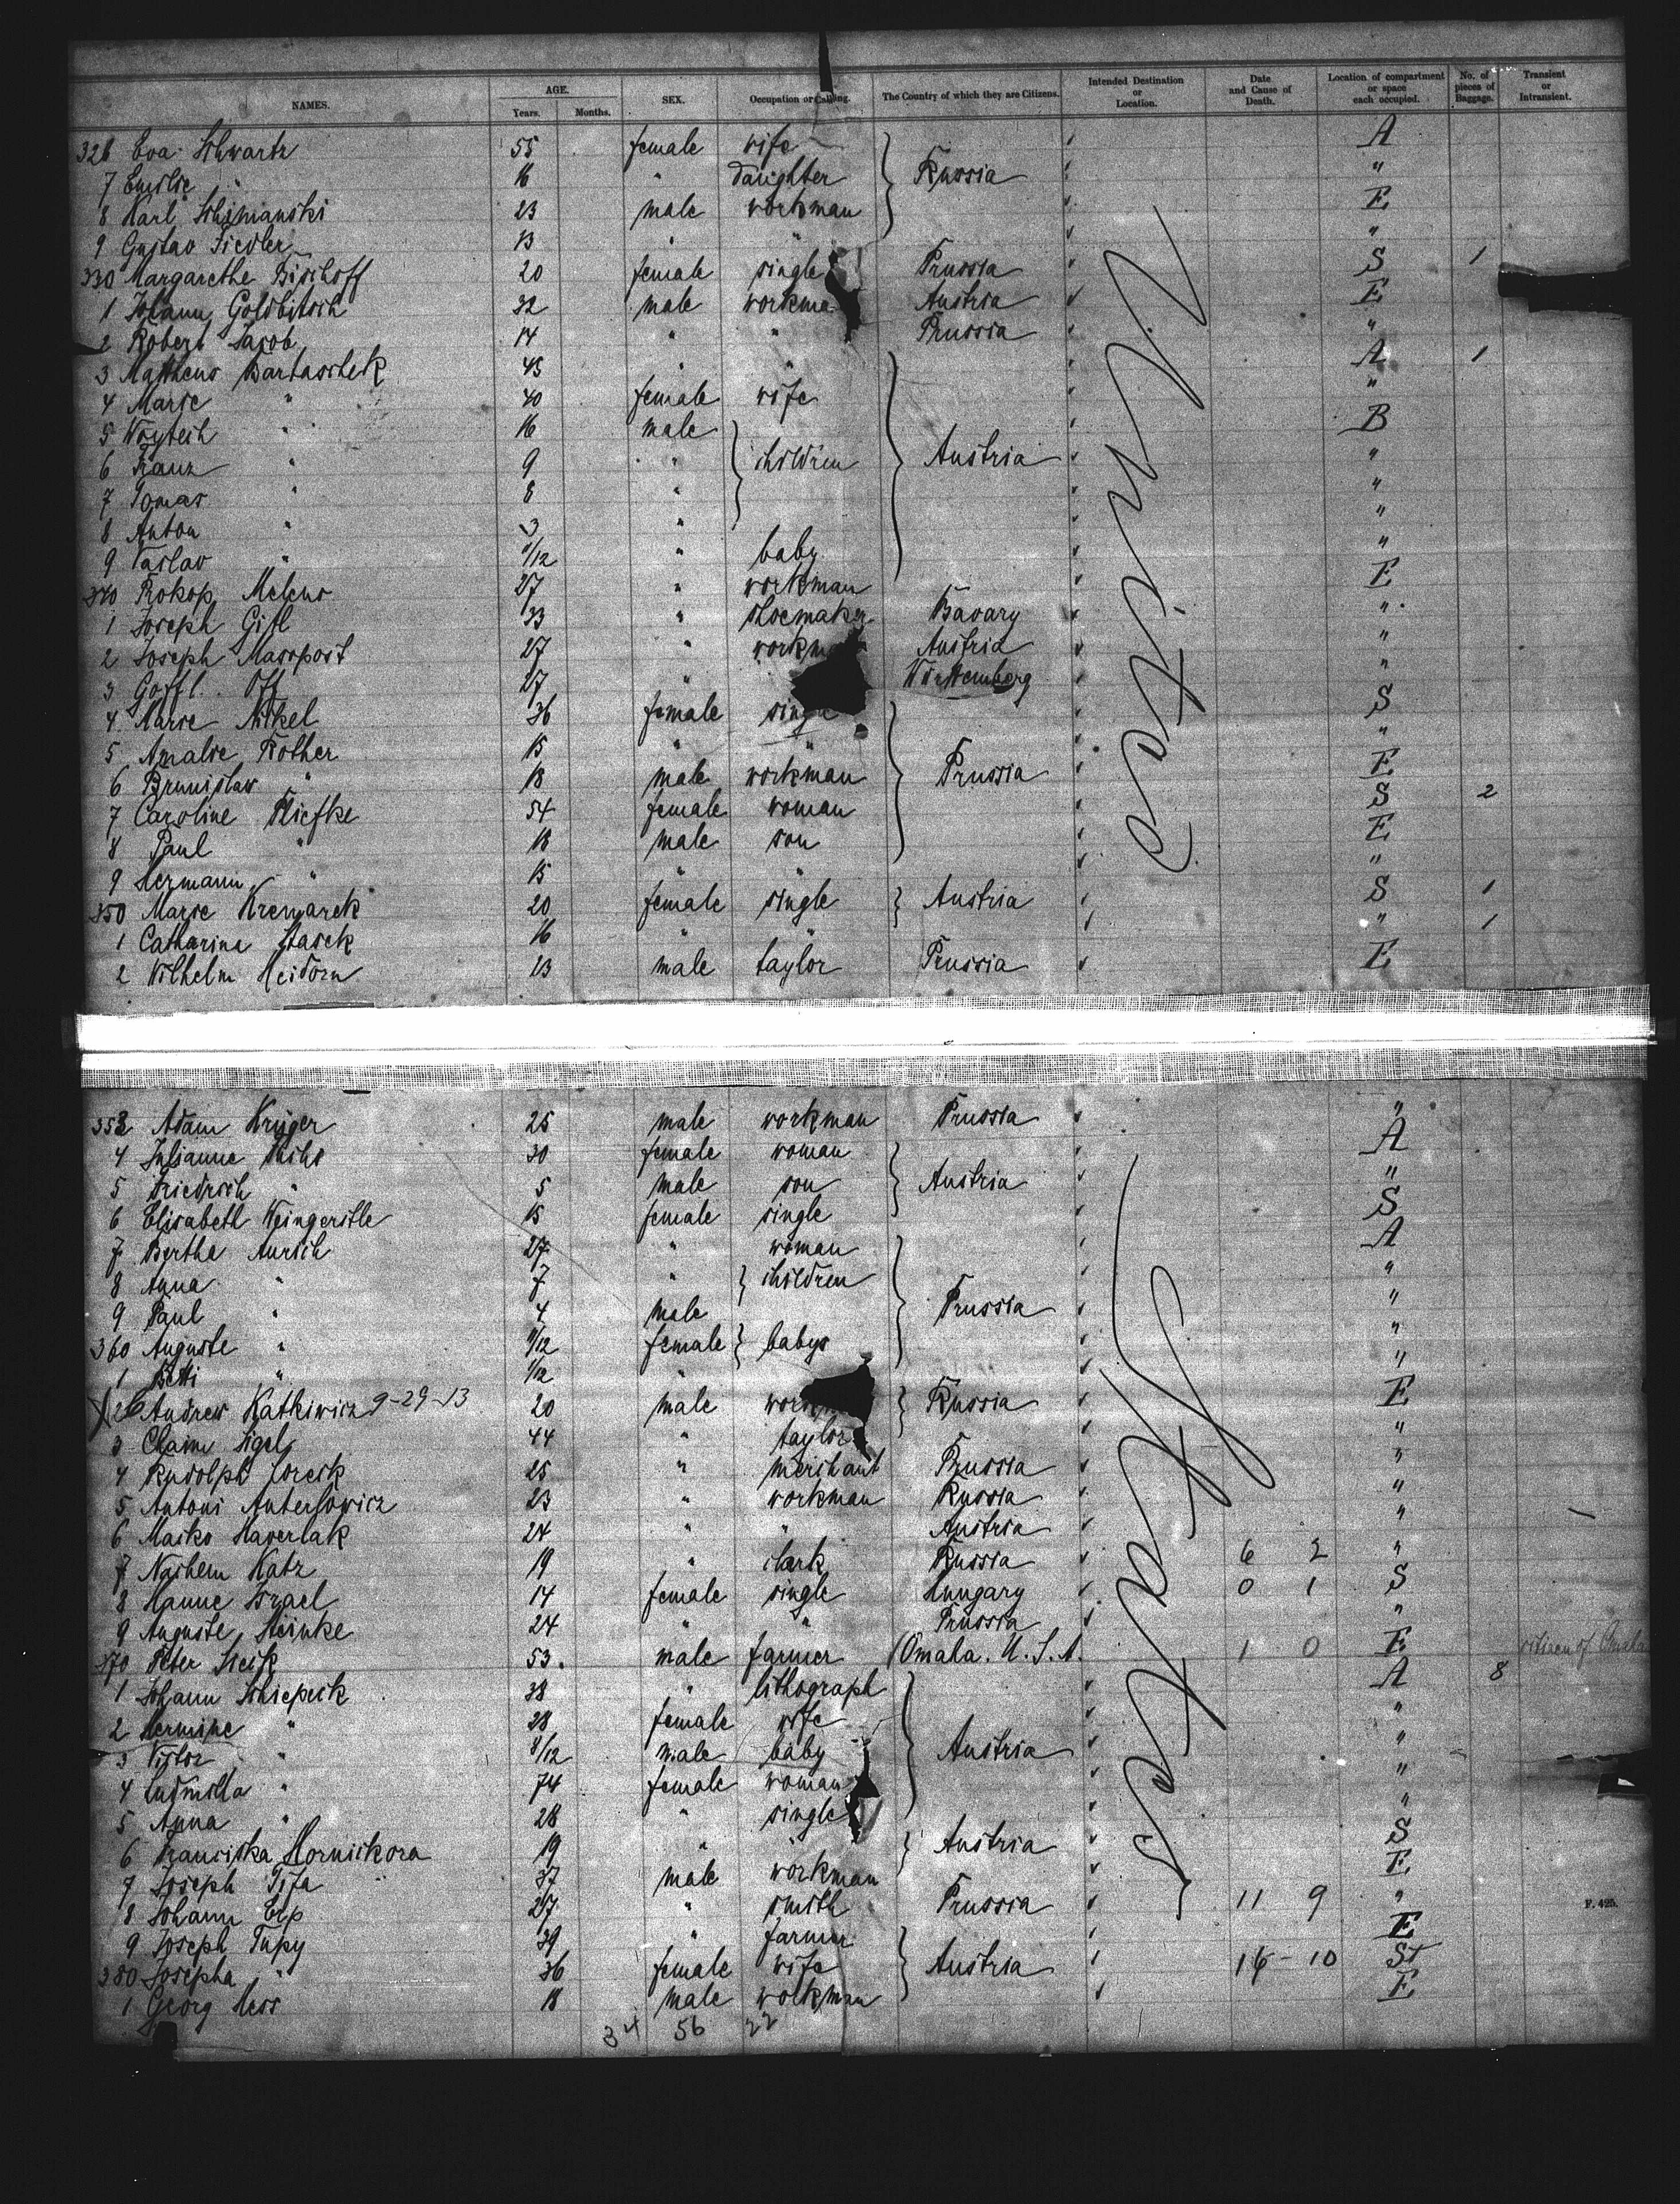 NAMES. AGE. Years. Months. SEX. Occupation or Calling. The Country of which they are Citizens. Intended Destination or Location. Date and Cause of Death. Location of compartment or space each occupied. No. of pieces of Baggage. Transient or Intransient.
326 Eva Schwartz 55 female wife A
7 Emilie " 16 " daughter Russia "
8 Karl Schimanski 23 male workman E
9 Gustav Fiedler 13 " " "
330 Margarethe Bischoff 20 female single Prussia S 1
1 Johann Goldbitsch 32 male workma Austria E
2 Robert Jacob 14 " " Prussia "
3 Mattheus Bartaschek 45 " " A 1
4 Marie " 40 female wife "
5 Woytech " 16 male B
6 Franz " 9 " children Austria "
7 Tomas " 8 " "
8 Anton " 3 " "
9 Vaslav " 11/12 " baby "
340 Prokop 27 " workman E
1 Joseph Gifl 33 " shoemaker Bavary "
2 Joseph Masopost 27 " workma Austria "
3 Gottl. Off 27 " Württemberg "
4 Marie Nickel 36 female single S
5 Amalie Rother 15 " " "
6 Brunislav " 18 male workman Prussia E
7 Caroline 54 female woman S 2
8 Paul " 18 male son E
9 Hermann " 15 " " "
350 Marie 20 female single Austria S 1
1 Catharina Stasek 16 " " " 1
2 Wilhelm Heidorn 23 male taylor Prussia E
353 Adam Krüger 25 male workman Prussia "
4 Julianne Fuchs 30 female woman A
5 Friedrich " 5 male son Austria "
6 Elisabeth 15 female single S
7 Bertha Aurich 27 " woman A
8 Anna " 7 " children "
9 Paul " 4 male Prussia "
360 Auguste " 11/12 female babys "
1 Betti " 1/12 " "
2 Andrew Katkiwicz 9-29-13 20 male work Russia E
3 Chaim Sigel 44 " taylor "
4 Rudolph 25 " merchant Prussia "
5 Antoni 23 " workman Russia "
6 Maiko Haverlak 24 " " Austria "
7 Nachem Katz 19 " clerk Russia 6 2 "
8 Hanne Israel 14 female single Hungary 0 1 S
9 Auguste Heinke 24 " " Prussia "
370 Peter 53. male farmer (Omaha. U. S. A. 1 0 E citizen of Omaha
1 Johann 38 " lithograph A 8
2 Hermine " 28 female wife "
3 Victor " 8/12 male baby Austria "
4 Ludmilla " 74 female woman "
5 Anna " 28 " single "
6 Franciska Hornickora 19 " " Austria S
7 Joseph 37 male workman E
8 Johann Erp 27 " smith Prussia 11 9 "
9 Joseph Tupy 39 " farmer E
380 Josepha " 36 female wife Austria 14 - 10 St
1 Georg Hess 18 male workman E
34 56 22
F. 425.